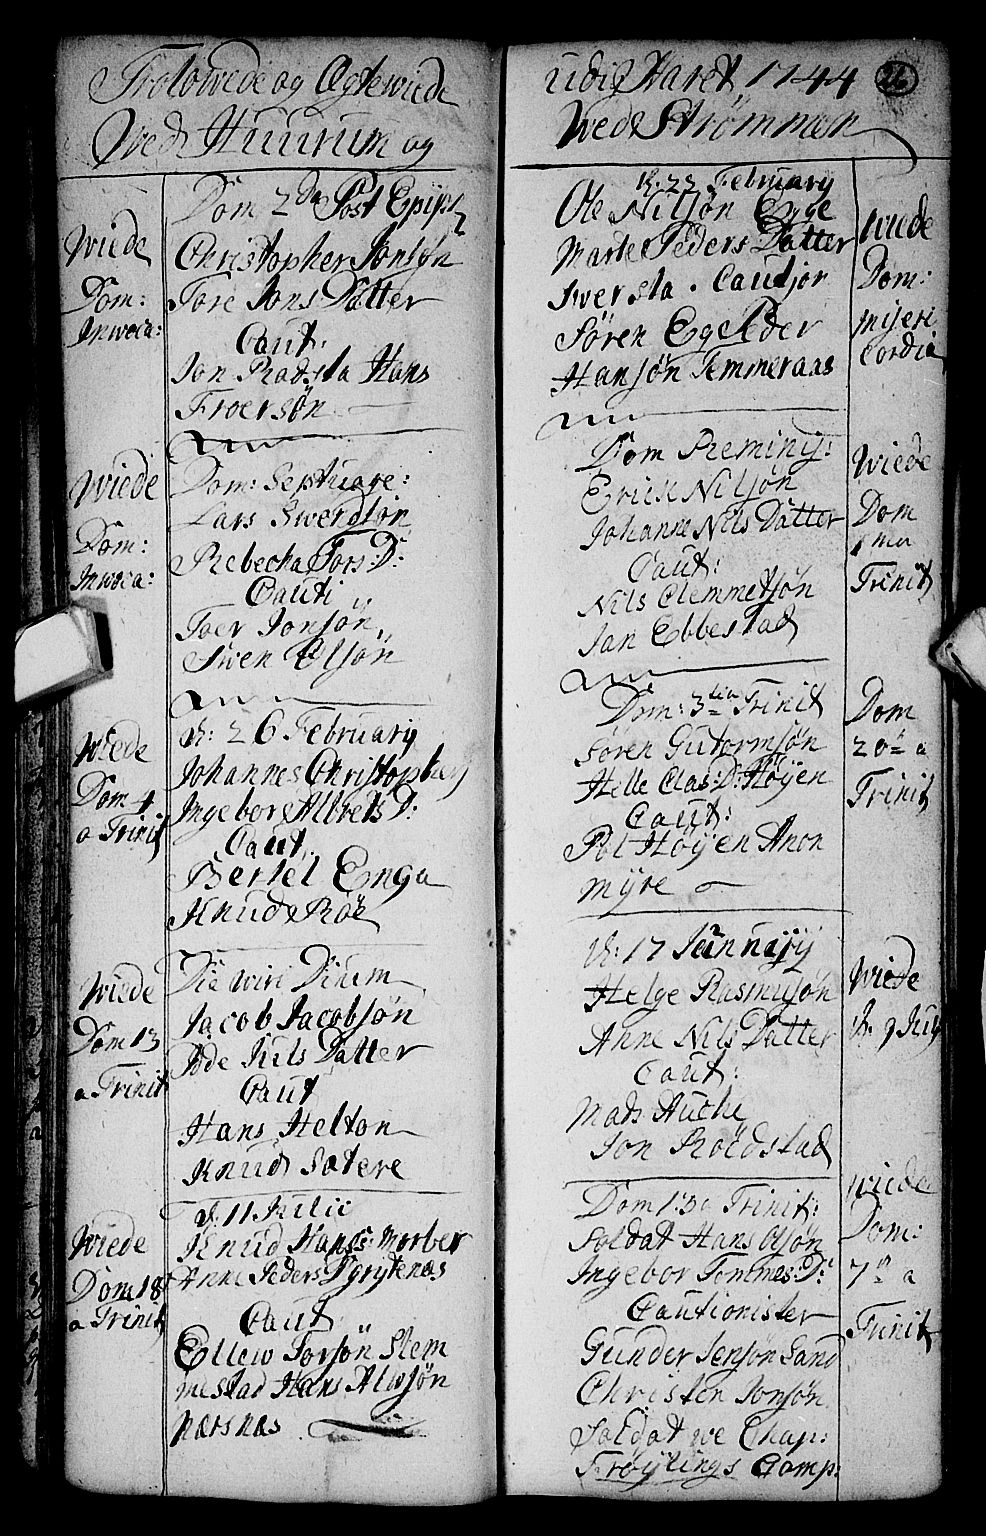 Trolowede og Ægtewiede
Wed Huurum og
Dom 2da Post Epiph
Wiede
Dom:
Inwoca:
Christopher Jonsøn
Tore Jons Datter
Caut:
Jon Rodsta Hans
Froersøn
Wiede
Dom:
Inwoca:
Dom: Septuage:
Lars Swerdsøn
Rebecha Tors: D:
Cauti
Toer Jonsøn
Swen Olsøn
Wiede
Dom 4
a Trinit
d: 26 February
Johannes Christophers
Ingebor Albrets D:
Caut
Bertel Enga
Knud Røe
Wiede
Dom 13
a Trinit
Die wiri Dinum
Jacob Jacobsøn
Ode Juls Datter
Caut
Hans Helton
Knud Sætere
Wiede
Dom 18
a Trinit
d: 11 Julii
Knud Hans: Morber
Anne Peders Grytenes
Caut
Ellew Torsøn Stem
mestad Hans Alwsøn
Næsnæs
udi Aaret 1744
26
Wed Strømmen
d: 22 February
Ole Nilsøn Egge
Marte Peders Datter
Swersta . Cautjor
Søren Ege Peder
Hansøn Temmeraas
Wiede
Dom:
miseri
Cordia
Dom Reminy:
Erick Nilsøn
Johanne Nils Datter
Caut:
Nils Clemmetsøn
Jan Ebbestad
Wiede
Dom
1ma
Trinit
Dom: 3tia Trinit
Søren Gutormsøn
Helle Clas: D: Høyen
Caut:
Pol Høyen Anon
myre
Dom
20 a
Trinit
d: 17 Januaryy
Helge Rasmusøn
Anne Nils Datter
Caut:
Mads Huche
Jon Roedstad
Wiede
d. 9 July
Dom 13a Trinit:
Soldat Hans Olsøn
Ingebor Tommes: D:
Cautionister
Gunder Jensøn Sand
Christen Jonsøn
Soldat we Chap:
Frøylings Comp:
Wiede
Dom:
7 a
Trinit